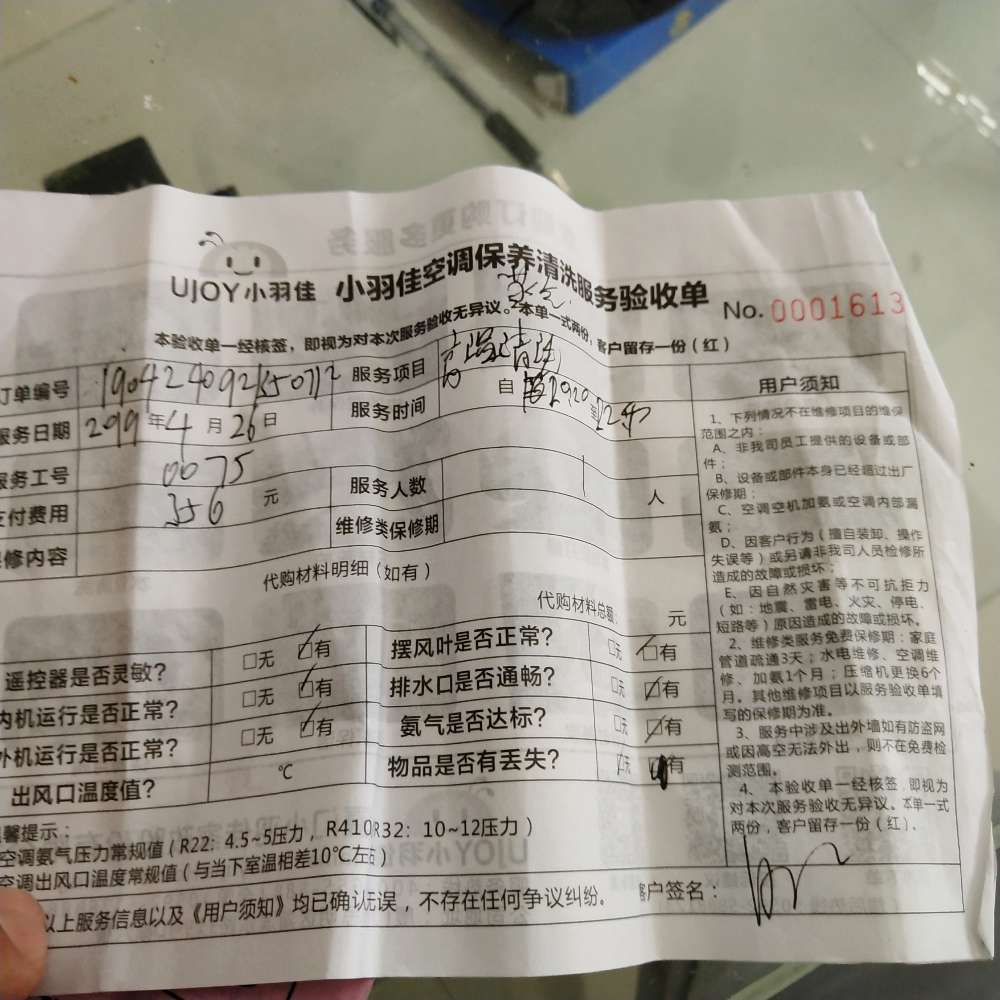 UJOY小羽佳 小羽佳空调保养清洗服务验收单 No. 0001613
本验收单一经核签，即视为对本次服务验收无异议。本单一式两份，客户留存一份（红）
订单编号 服务项目 高温清洗
服务日期 年 4 月 26 日 服务时间 自 至
服务工号 0075 服务人数 1 人
支付费用 356 元 维修类保修期
保修内容
代购材料明细（如有）
代购材料总额： 元
遥控器是否灵敏？ □无 □有 摆风叶是否正常？ □无 □有
内机运行是否正常？ □无 □有 排水口是否通畅？ □无 □有
外机运行是否正常？ □无 □有 氨气是否达标？ □无 □有
出风口温度值？ ℃ 物品是否有丢失？ □无 □有
温馨提示：
空调氨气压力常规值（R22：4.5~5压力，R410R32：10~12压力）
空调出风口温度常规值（与当下室温相差10℃左右）
以上服务信息以及《用户须知》均已确认无误，不存在任何争议纠纷。 客户签名：
用户须知
1、下列情况不在维修项目的维保
范围之内：
A、非我司员工提供的设备或部
件；
B、设备或部件本身已经超过出厂
保修期；
C、空调空机加氨或空调内部漏
氨；
D、因客户行为（擅自装卸、操作
失误等）或另请非我司人员检修所
造成的故障或损坏；
E、因自然灾害等不可抗拒力
（如：地震、雷电、火灾、停电、
短路等）原因造成的故障或损坏。
2、维修类服务免费保修期：家庭
管道疏通3天；水电维修、空调维
修、加氨1个月；压缩机更换6个
月。其他维修项目以服务验收单填
写的保修期为准。
3、服务中涉及出外墙如有防盗网
或因高空无法外出，则不在免费检
测范围。
4、本验收单一经核签，即视为
对本次服务验收无异议。本单一式
两份，客户留存一份（红）。